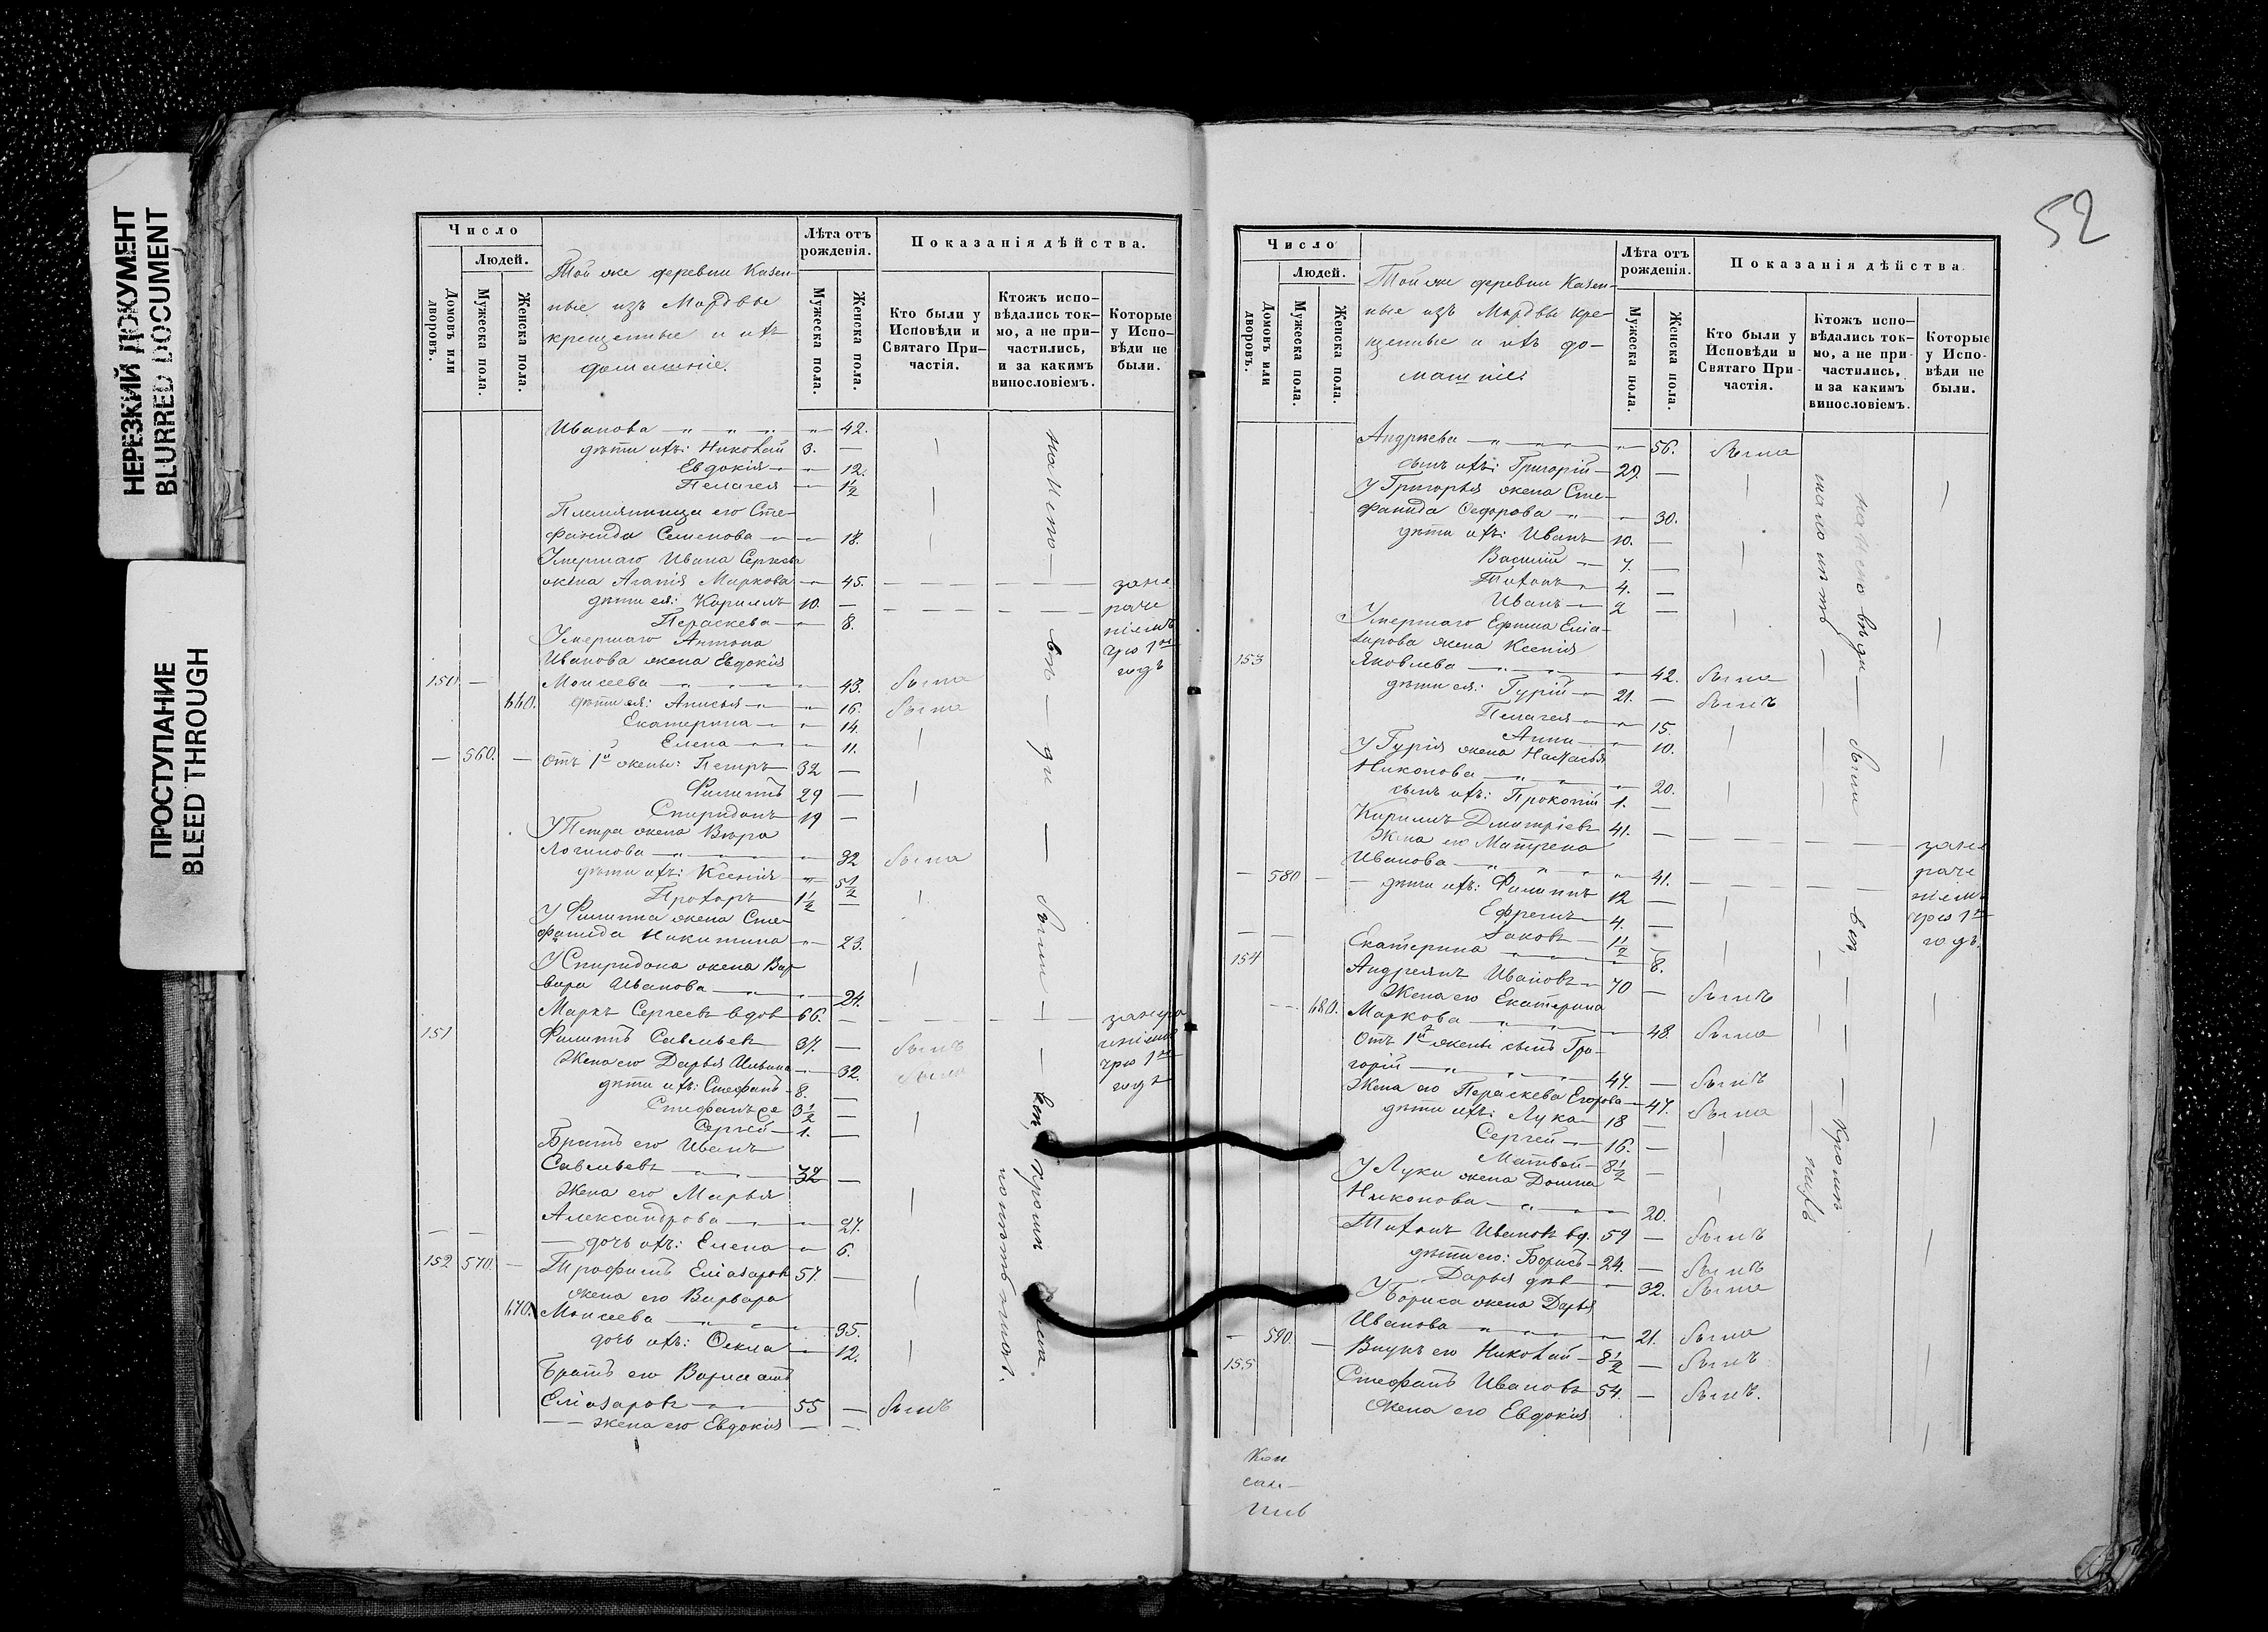 НЕРЕЗКИЙ ДОКУМЕНТ
BLURRED DOCUMENT
ПРОСТУПАНИЕ
BLEED THROUGH
Число
Людей.
Домовъ или дворовъ.
Мужеска пола.
Женска пола.
Той же деревни Казен-
ные изъ Мордвы
крещенные и ихъ
домашніе.
Лѣта отъ рожденія.
Мужеска пола.
Женска пола.
Показанія дѣйства.
Кто были у Исповѣди и Святаго При-частія.
Ктожъ испо-вѣдались ток-мо, а не при-частились, и за какимъ винословіемъ.
Которые у Испо-вѣди не были.
Иванова 42.
дѣти ихъ: Николай 3. —
Евдокія 12.
Пелагея 1½
Племянница его Сте-
фанида Семенова 18.
Умершаго Ивана Сергѣева
жена Агапія Маркова 45. — зане
дѣти ея: Кириллъ 10. — раче
Пераскева 8. ніемъ
Умершаго Антона чрез 1
Иванова жена Евдокія годъ
150 — Моисеева 43. была
660. дѣти ея: Анисья 16. была
Екатерина 14.
Елена 11.
— 560. — Отъ 1й жены: Петръ 32 —
Филиппъ 29 —
Спиридонъ 19 —
У Петра жена Вѣра
Логинова 32 была
дѣти ихъ: Ксенія 5½
Прохоръ 1½ —
У Филиппа жена Сте-
фанида Никитина 23.
У Спиридона жена Вар-
вара Иванова 24.
Маркъ Сергеевъ вдов 66. —
151 Филиппъ Савельев 37. — былъ
Жена его Дарья Ильина 32. была
дѣти ихъ: Стефанъ 8. —
Стефанъ же 3½ —
Сергей 1. —
Братъ его Иванъ
Савельевъ 32 —
Жена его Марья
Александрова 27.
— дочь ихъ: Елена 6.
152 570. — Трофимъ Еліазаров 57. —
жена его Варвара
670. Моисеева 35.
дочь ихъ: Ѳекла 12.
Братъ его
Еліазаровъ 55 — былъ
— — жена его Евдокія — —
52
Число
Людей.
Домовъ или дворовъ.
Мужеска пола.
Женска пола.
Той же деревни Казен-
ные изъ Мордвы кре-
щенные и ихъ до-
машніе.
Лѣта отъ рожденія.
Мужеска пола.
Женска пола.
Показанія дѣйства.
Кто были у Исповѣди и Святаго При-частія.
Ктожъ испо-вѣдались ток-мо, а не при-частились, и за какимъ винословіемъ.
Которые у Испо-вѣди не были.
Андреева 56. была
сынъ ихъ: Григорій 29. —
У Григорья жена Сте-
фанида Ѳедорова 30.
дѣти ихъ: Иванъ 10. —
Василій 7. —
Тихонъ 4. —
Иванъ 2 —
Умершаго Ефима Еліа-
зарова жена Ксенія
153 Яковлева 42. была
дѣти ея: Гурій 21. — былъ
Пелагея 15.
Анна 10.
У Гурія жена Настасья
Никонова 20.
сынъ ихъ: Прокопій 1. —
Кириллъ Дмитріевъ 41. — зане
Жена его Матрена раче
Иванова 41. ніемъ
— 580 — дѣти ихъ: Филиппъ 12 —
Ефремъ 4. — годъ.
Іаковъ 1½
Екатерина 8.
154 Андреянъ Ивановъ 70 — былъ
Жена его Екатерина
680. Маркова 48. была
Отъ 1й жены сынъ Гри-
горій 47. — былъ
Жена его Пераскева Егорова 47. была
дѣти ихъ: Лука 18 —
Сергей 16. —
Матвей 8½ —
У Луки жена Домна
Никонова 20.
Тихонъ Ивановъ вд. 59 — былъ
дѣти его: Борисъ 24. — былъ
Дарья 32. была
У Бориса жена Дарья
Иванова 21. была
— 590. — Внукъ его Николай 8½ — былъ
155 Стефанъ Ивановъ 54. — былъ.
жена его Евдокія